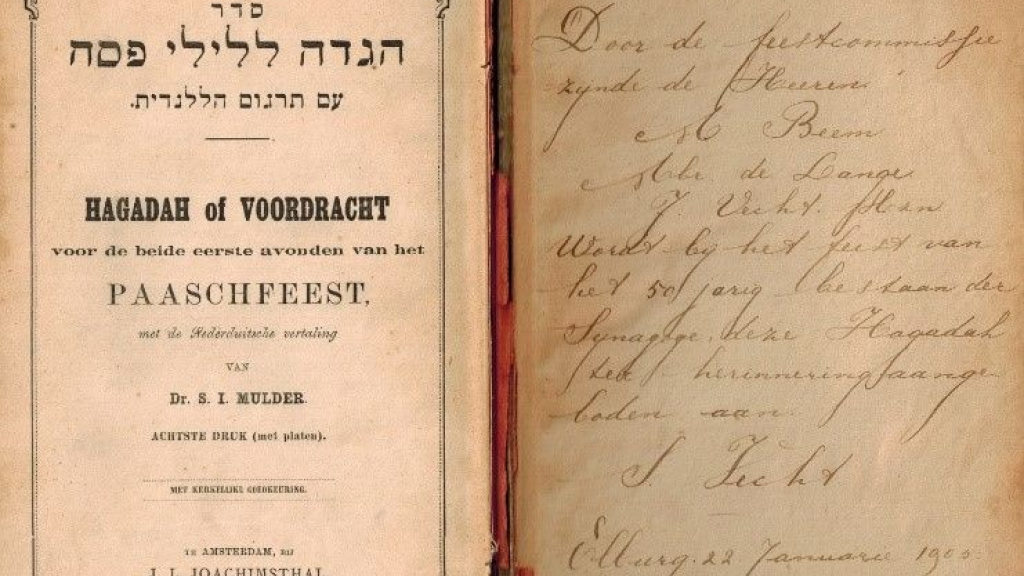 סדר
הגדה ללילי פסח
עם תרגום הללנדית.
HAGADAH of VOORDRACHT
voor de beide eerste avonden van het
PAASCHFEEST,
met de Nederduitsche vertaling
VAN
Dr. S. I. MULDER.
ACHTSTE DRUK (met platen).
MET KERKELIJKE GOEDKEURING.
TE AMSTERDAM, BIJ
J. L. JOACHIMSTHAL
Door de feestcommissie
zijnde de Heeren
M Beem
Abr de Lange
J. Vecht
Wordt by het feest van
het 50 jarig bestaan der
Synagoge deze Hagadah
ter herinnering aange
boden aan
Vecht
Elburg. 22 Januarie